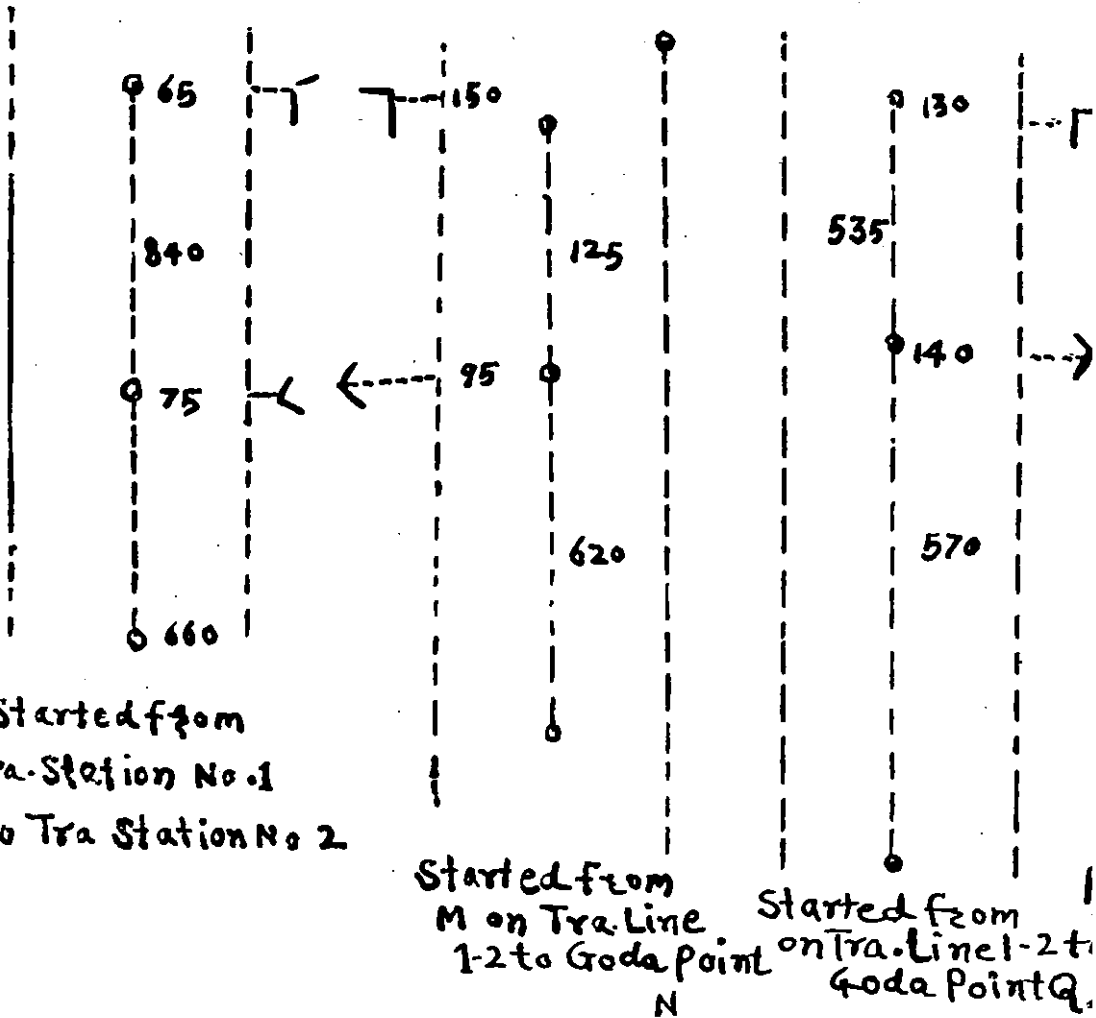 65
840
75
660
Started from
Tra. Station No.1
to Tra Station No 2
150
125
95
620
Started from
M on Tra. Line
1-2 to Goda Point
N
130
535
140
570
Started from
on Tra. Line 1-2 t
Goda Point Q.